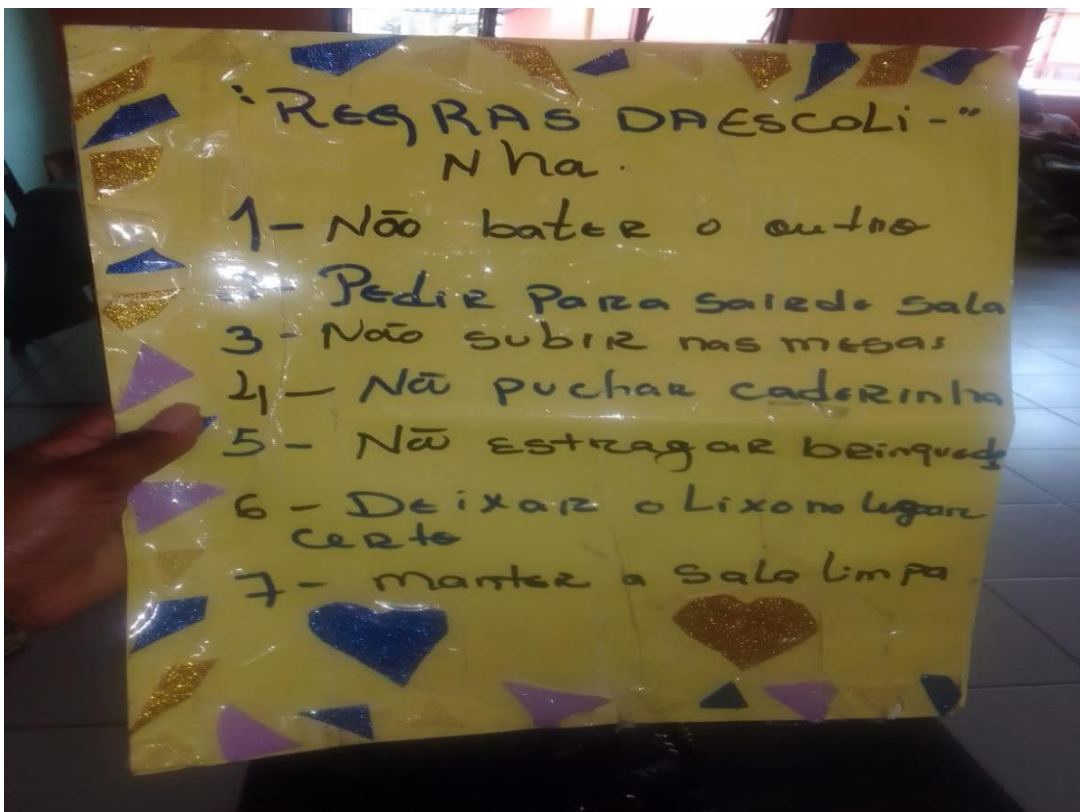 "REGRAS DAESCOLI-"
Nha.
1- Não bater o outro
2- Pedir Para sairda sala
3- Não subir nas mesas
4- Nã puchar caderinha
5- Nã Estragar brinquedos
6- Deixar o Lixo no lugar
certo
7- manter a Sala limpa